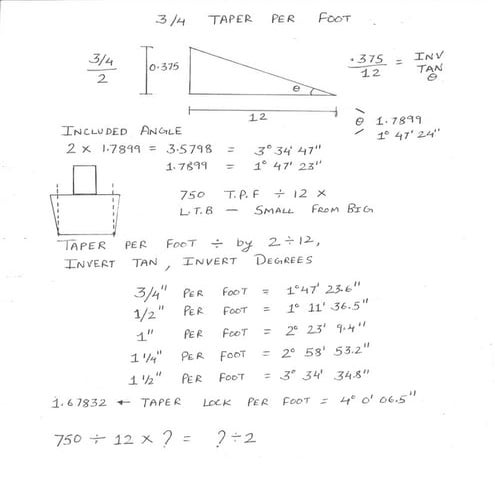 3/4 TAPER PER FOOT
3/4
2
0.375
θ
12
.375
12
= INV TAN θ
θ 1.7899
1° 47' 24"
INCLUDED ANGLE
2 × 1.7899 = 3.5798 = 3° 34' 47"
1.7899 = 1° 47' 23"
750 T.P.F ÷ 12 ×
L.T.B - SMALL FROM BIG
TAPER PER FOOT ÷ by 2 ÷ 12,
INVERT TAN, INVERT DEGREES
3/4" PER FOOT = 1° 47' 23.6"
1/2" PER FOOT = 1° 11' 36.5"
1" PER FOOT = 2° 23' 9.4"
1 1/4" PER FOOT = 2° 58' 53.2"
1 1/2" PER FOOT = 3° 34' 34.8"
1.67832 ← TAPER LOCK PER FOOT = 4° 0' 06.5"
750 ÷ 12 × ? = ? ÷ 2